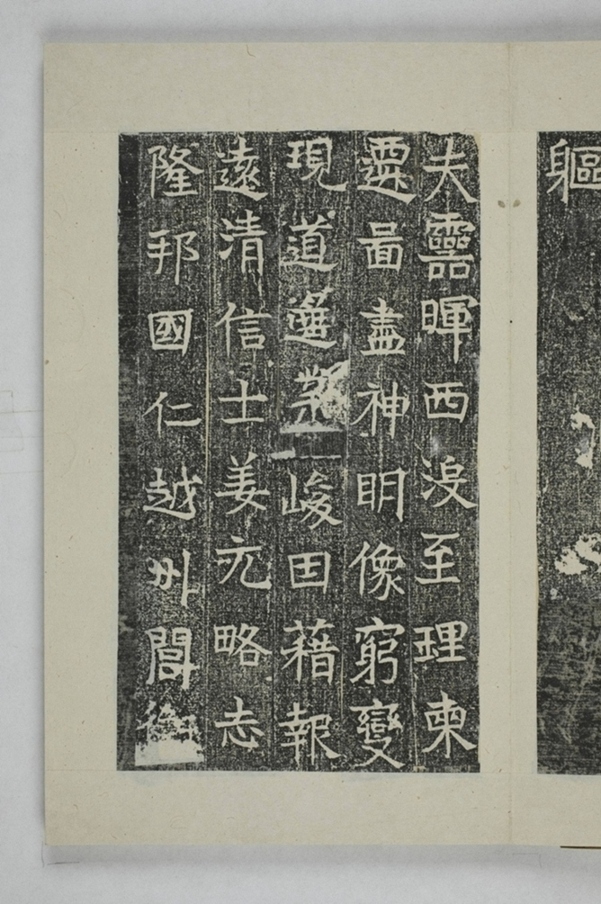 軀
夫靈暉西沒至理東
遷啚盡神明像窮變
現道邁峻田藉報
遠清信士姜元略志
隆邦國仁越州閭